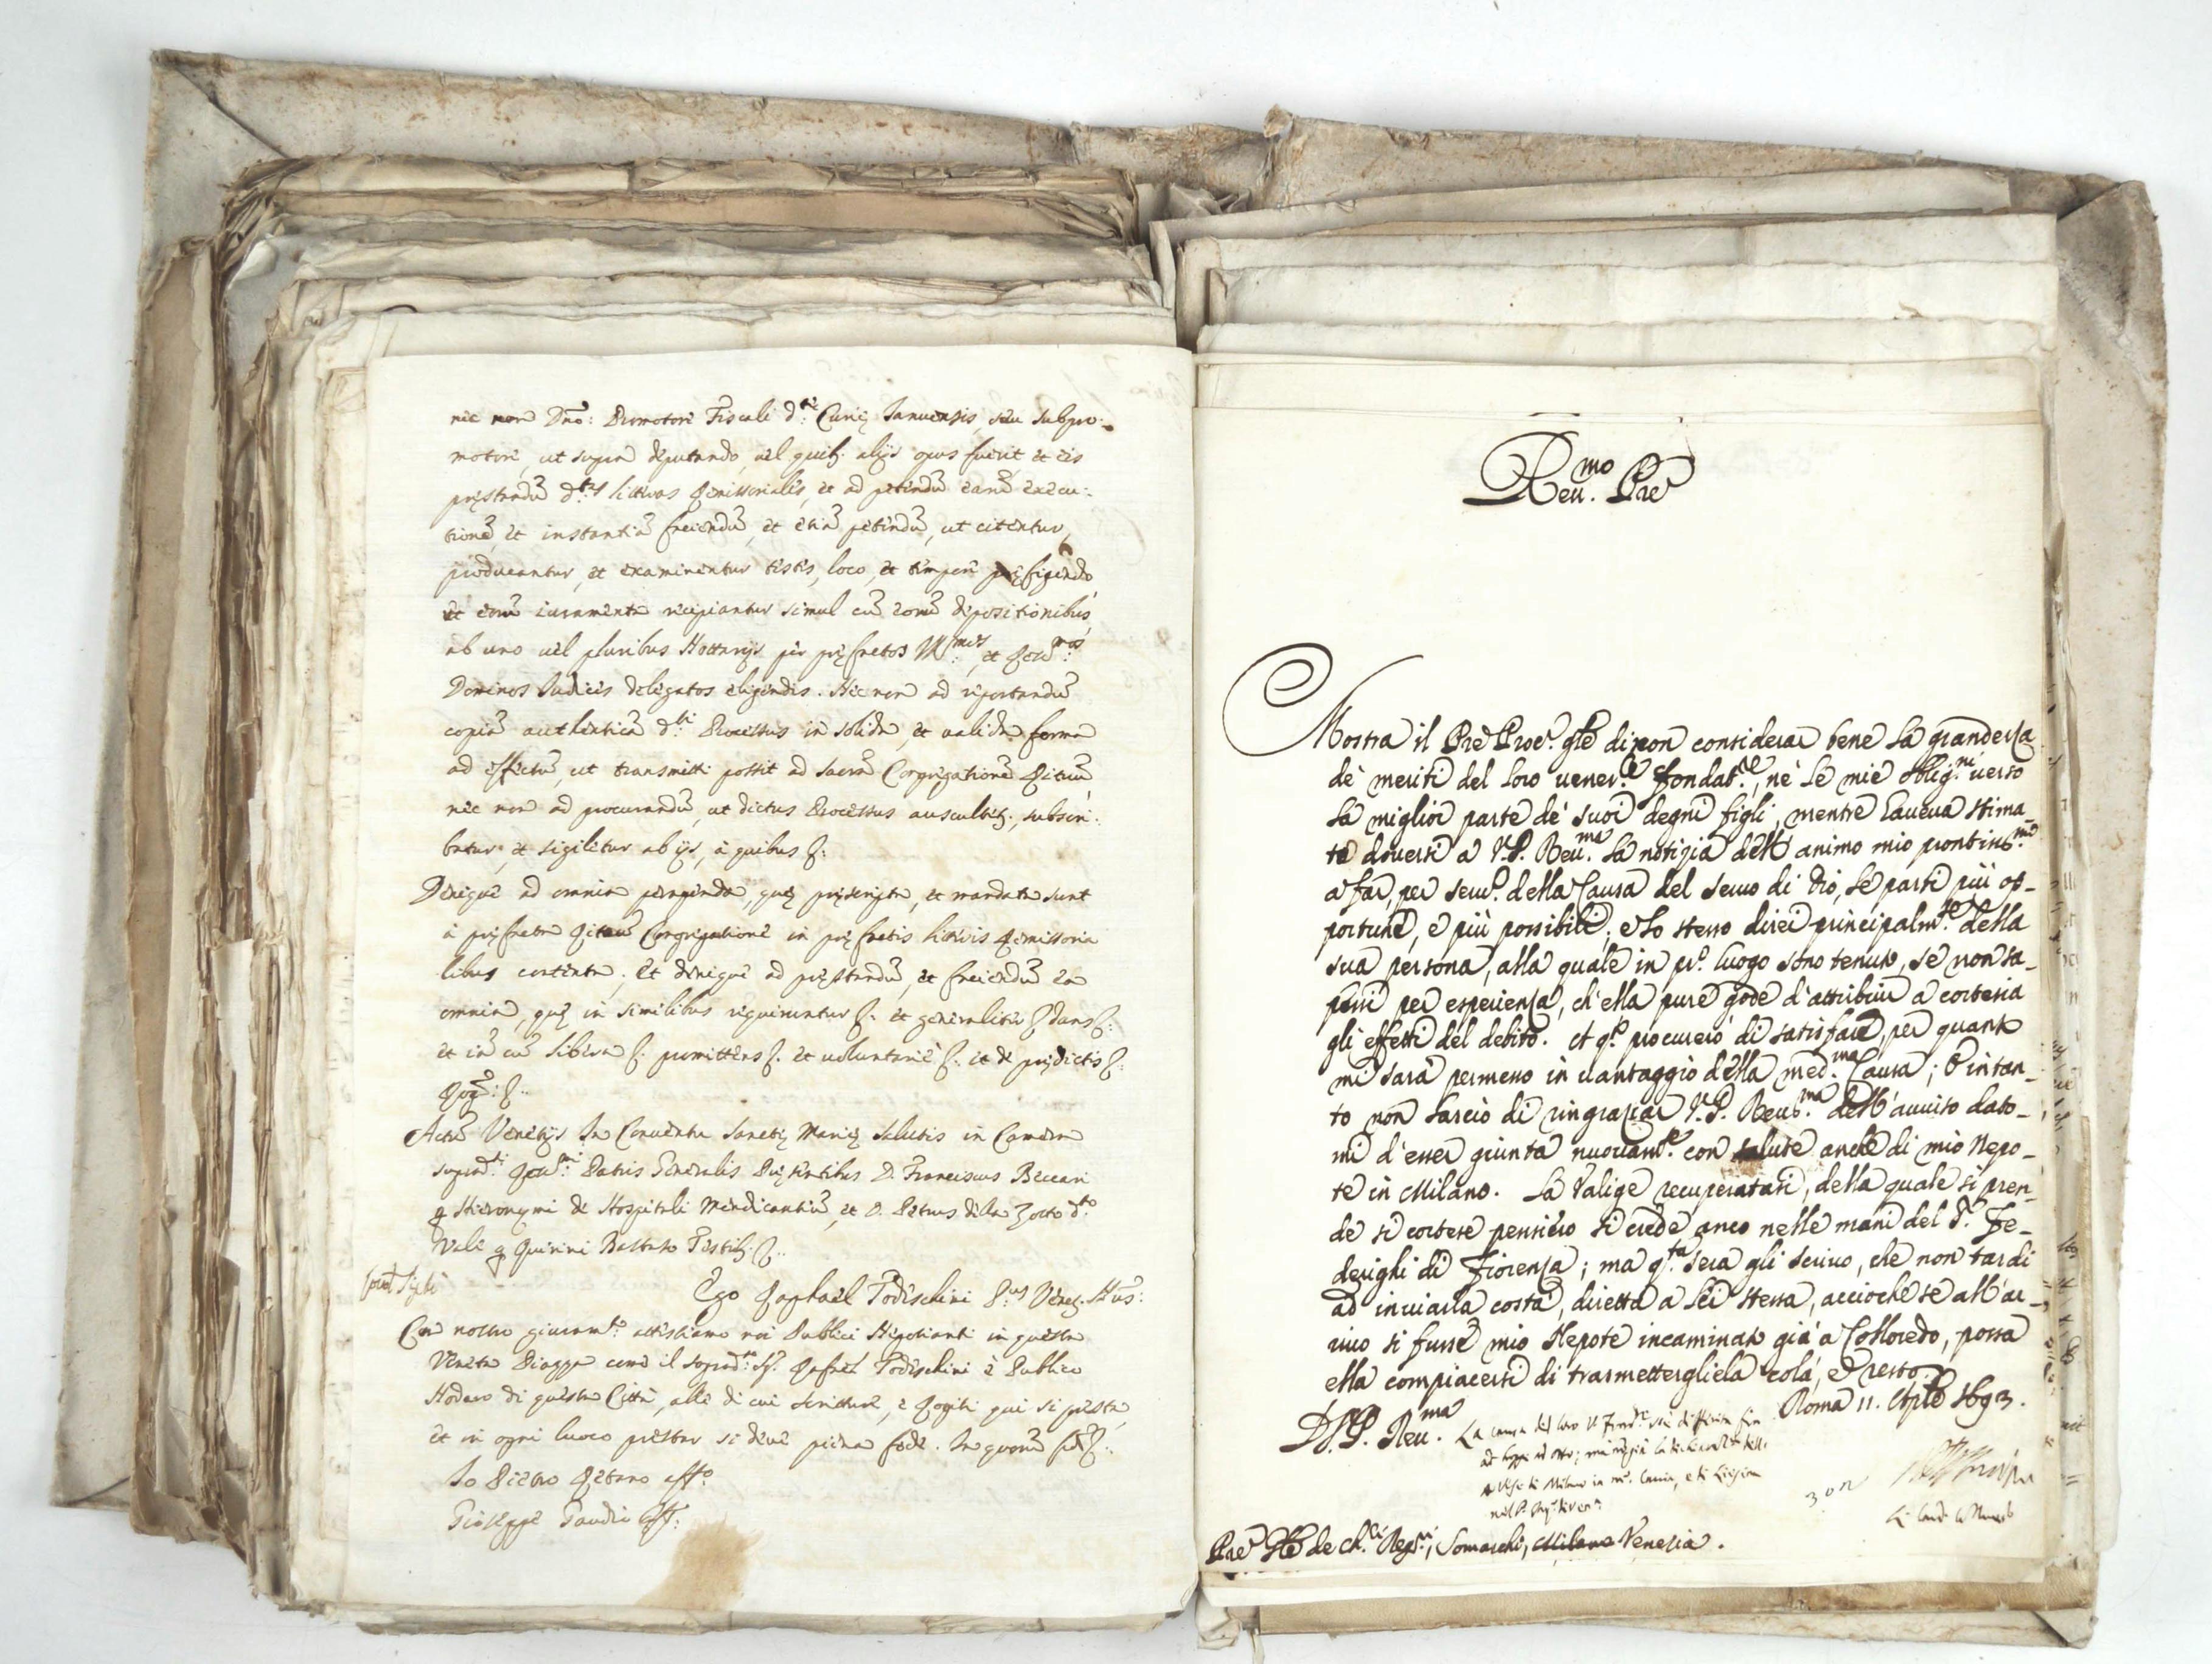 nec non Dno: Promotori Fiscali d.tę Curię Ianuensis, seu subpro-
motori, ut supra deputando, vel quib. alijs opus fuerit et eis
pręstandũ d.tas litteras Remissoriales, et ad petendũ earũ execu-
tionẽ, et instantiã faciendũ, et etiã petendũ, ut citentur,
producantur, et examinentur testes, loco, et tempore pręfigendo,
et eorũ iuramenta recipiantur simul cũ eorũ depositionibus,
ab uno vel pluribus Nottarijs per pręfatos Ill.mos, et Reu.mos
Dominos Iudices delegatos eligendis. Nec non ad reportandũ
copiã authenticã d.ti Processus in solida, et valida forma
ad effectũ, ut transmitti possit ad Sacrã Congregationẽ Rituũ,
nec non ad procurandũ, ut dictus Processus auscultet., subscri-
batur, et sigiletur ab ijs, à quibus &.
Denique ad omnia peragenda, quę pręscripta, et mandata sunt
à pręfata Rituũ Congregatione in pręfatis litteris Remissoria
libus contenta; Et denique ad pręstandũ, et faciendũ ea
omnia, quę in similibus requiruntur &. et generaliter & dans &.
et in eũ libera &. promittens &. et voluntariè &. et de prędictis &.
Rog.o: &.
Actũ Venetijs In Conventu Sanctę Marię Salutis in Camera
suprad.ti Reu.mi Patris Generalis Pręsentibus D. Franciscus Beccari
q Hieronymi de Hospitali Mendicantiũ, et D. Petrus dilla Zotto d.to
Vale q Quirini Battaso Testib. &.
Ego Raphaël Todeschini P.us Venet. Nus:
Con nostro giuram.to attestiamo noi Publici Negotianti in questa
Veneta Piazza come il soprad.to S.r Rafael Todeschini è Publico
Nodaro di questa Città, alle di cui scritture, e Rogiti qui si presta,
et in ogni luoco prestar si deve piena fede. In quorũ fidẽ &.
Io Pietro Retano aff.o
Gioseppe Gaudio aff:
Reu.mo Pre
Mostra il Pre Proc.r gle di non considerar bene la grandezza
de' meriti del loro vener.le fondat.re, nè le mie oblig.ni verso
la miglior parte de' suoi degni figli, mentre haueua stima-
to doversi a V.P. Reu.ma la notizia dell'animo mio prontiss.mo
a far, per seru.o della Causa del seruo di Dio, le parti più op-
portune, e più possibili; e lo stesso direi principalm.te della
sua persona, alla quale in p.o luogo sono tenuto, se non sa-
pessi per esperienza, ch'ella pure gode d'attribuir a cortesia
gli effetti del debito. et q.o procurerò di satisfare, per quanto
mi sarà permesso in vantaggio della med.ma Causa; E intan-
to non lascio di ringraziar V.P. Reu.ma dell'auuiso dato-
mi d'esser giunta nuovam.te con salute anche di mio Nepo-
te in Milano. La Valige recuperatasi, della quale si pren-
de sì cortese pensiero si crede anco nelle mani del S.r Fe-
derighi di Fiorenza; ma q.ta sera gli scriuo, che non tardi
ad inuiarla costà, diretta a lei stessa, accioche se all'ar-
riuo si fusse mio Nepote incaminato già a Colloredo, possa
ella compiacersi di trasmettergliela colà, e resto.
Roma 11. Aple 1693.
D.V.P. Reu.ma
Pre Gle de Ch.ci Reg.ri, Somaschi, Milano Venezia.